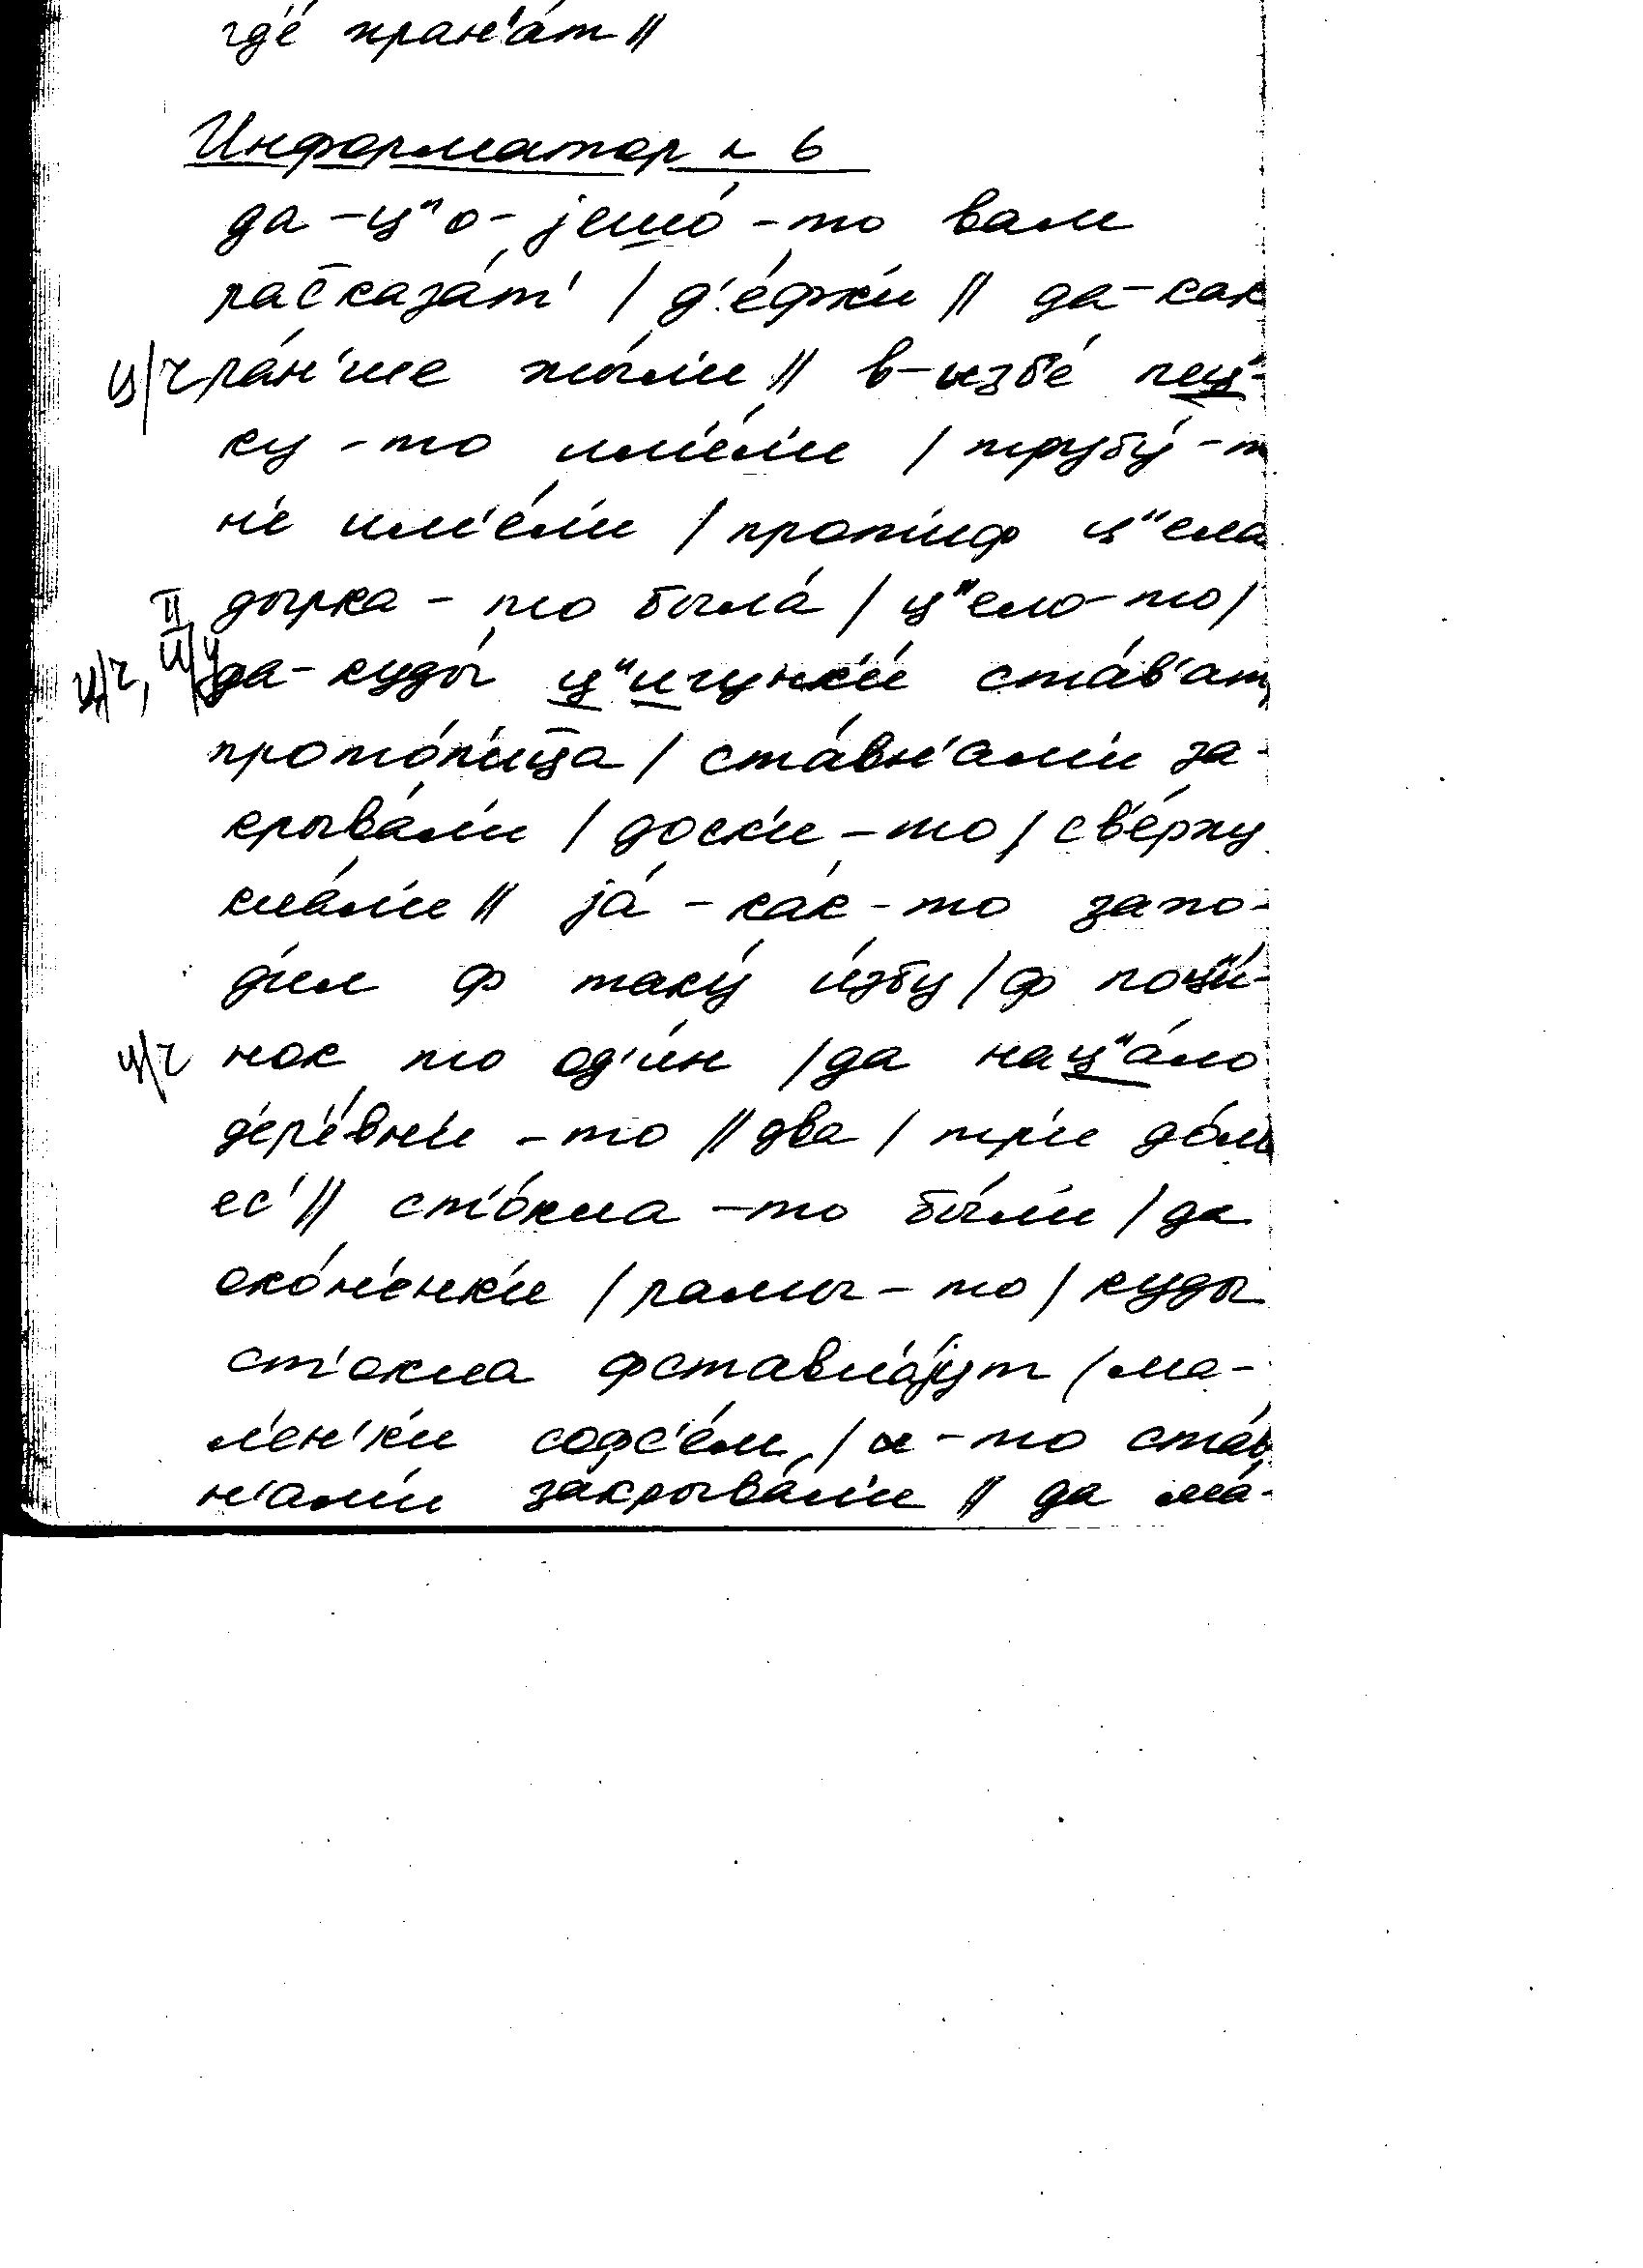 гд'е́ хран'а́т ||
Информатор № 6
да-ц"о-jешо́-то вам
рас̄каза́т' / д'е́фки || да-как
ц/ч ра́н'ше жы́л'и || в-ызб'е́ п'ец"-
ку-то им'е́л'и / трубу́-т
н'е им'е́л'и / прот'иф ц"ела
дырка-то была́ / ц"ело-то /
ц/ч, II и/у да-куды́ ц"игунк'и́ ста́в'ат
прото́п'иц̄а / ста́вн'ам'и за-
крыва́л'и / доск'и-то / св'е́рху
кла́л'и || jа́-ка́к-то захо-
д'ил ф таку́ и́збу / ф поц"и́-
ц/ч нок то од'и́н / да нац"а́ло
д'ер'е́вн'и-то || два / тр'и до́ма
ес' || ст'о́кла-то бы́л'и / да
око́н'енк'и / рамы-то / куды
ст'окла фставл'а́jут / ма-
л'ен'к'и софс'е́м / а-то ста́в
н'ам'и закрыва́л'и || да ма́-